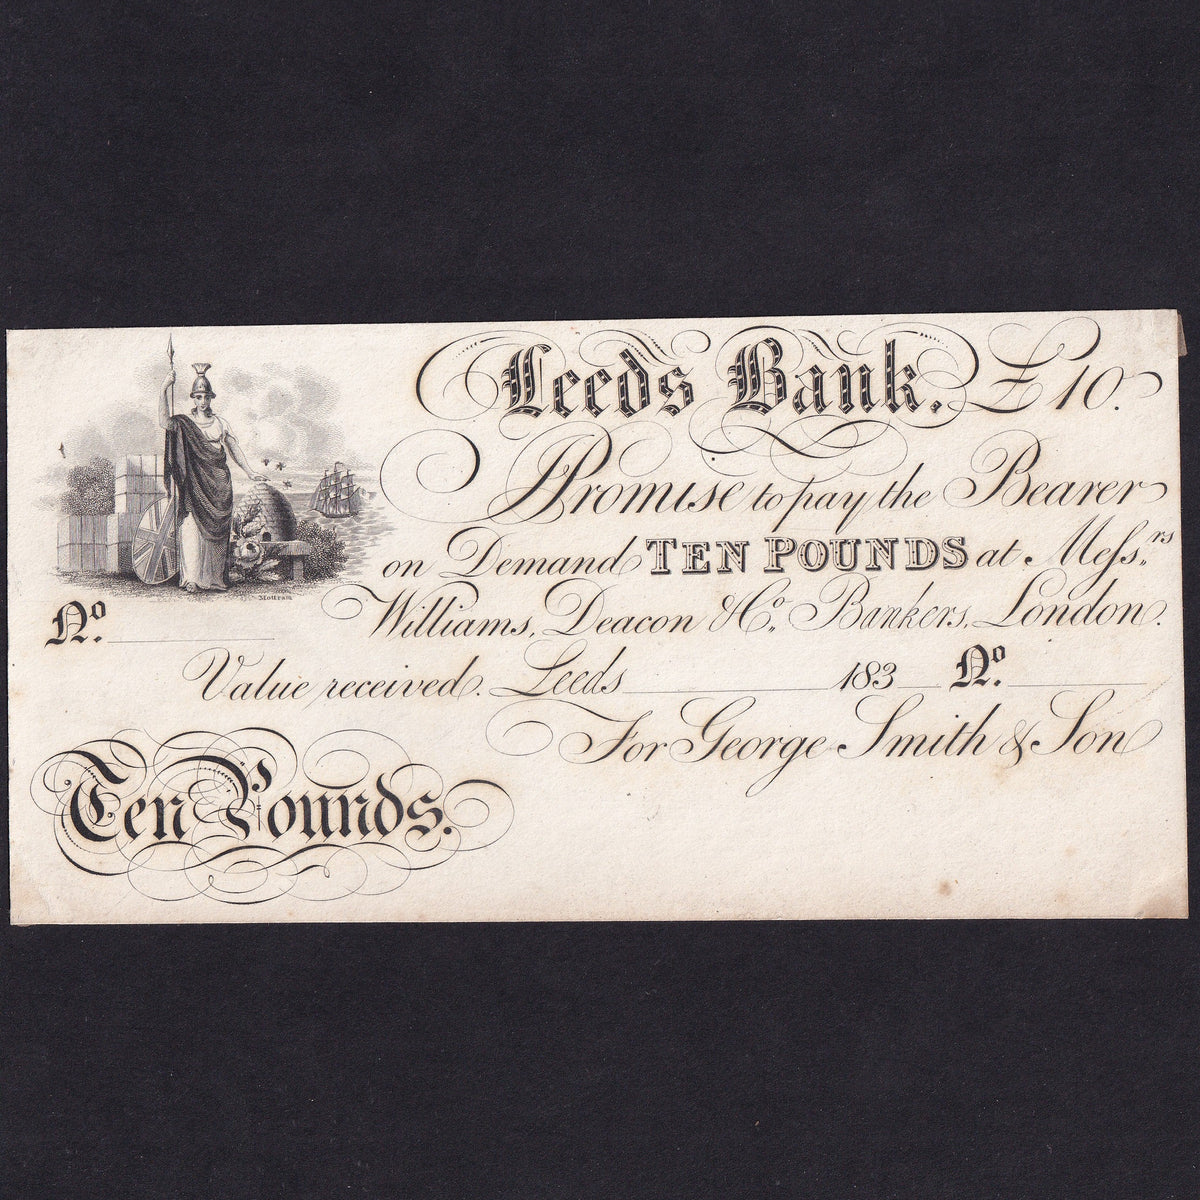 Leeds Bank. £10.
I Promise to pay the Bearer
on Demand TEN POUNDS at Messrs.
Williams, Deacon & Co. Bankers, London.
Mottram
No.
Value received. Leeds 183 No.
For George Smith & Son
Ten Pounds.